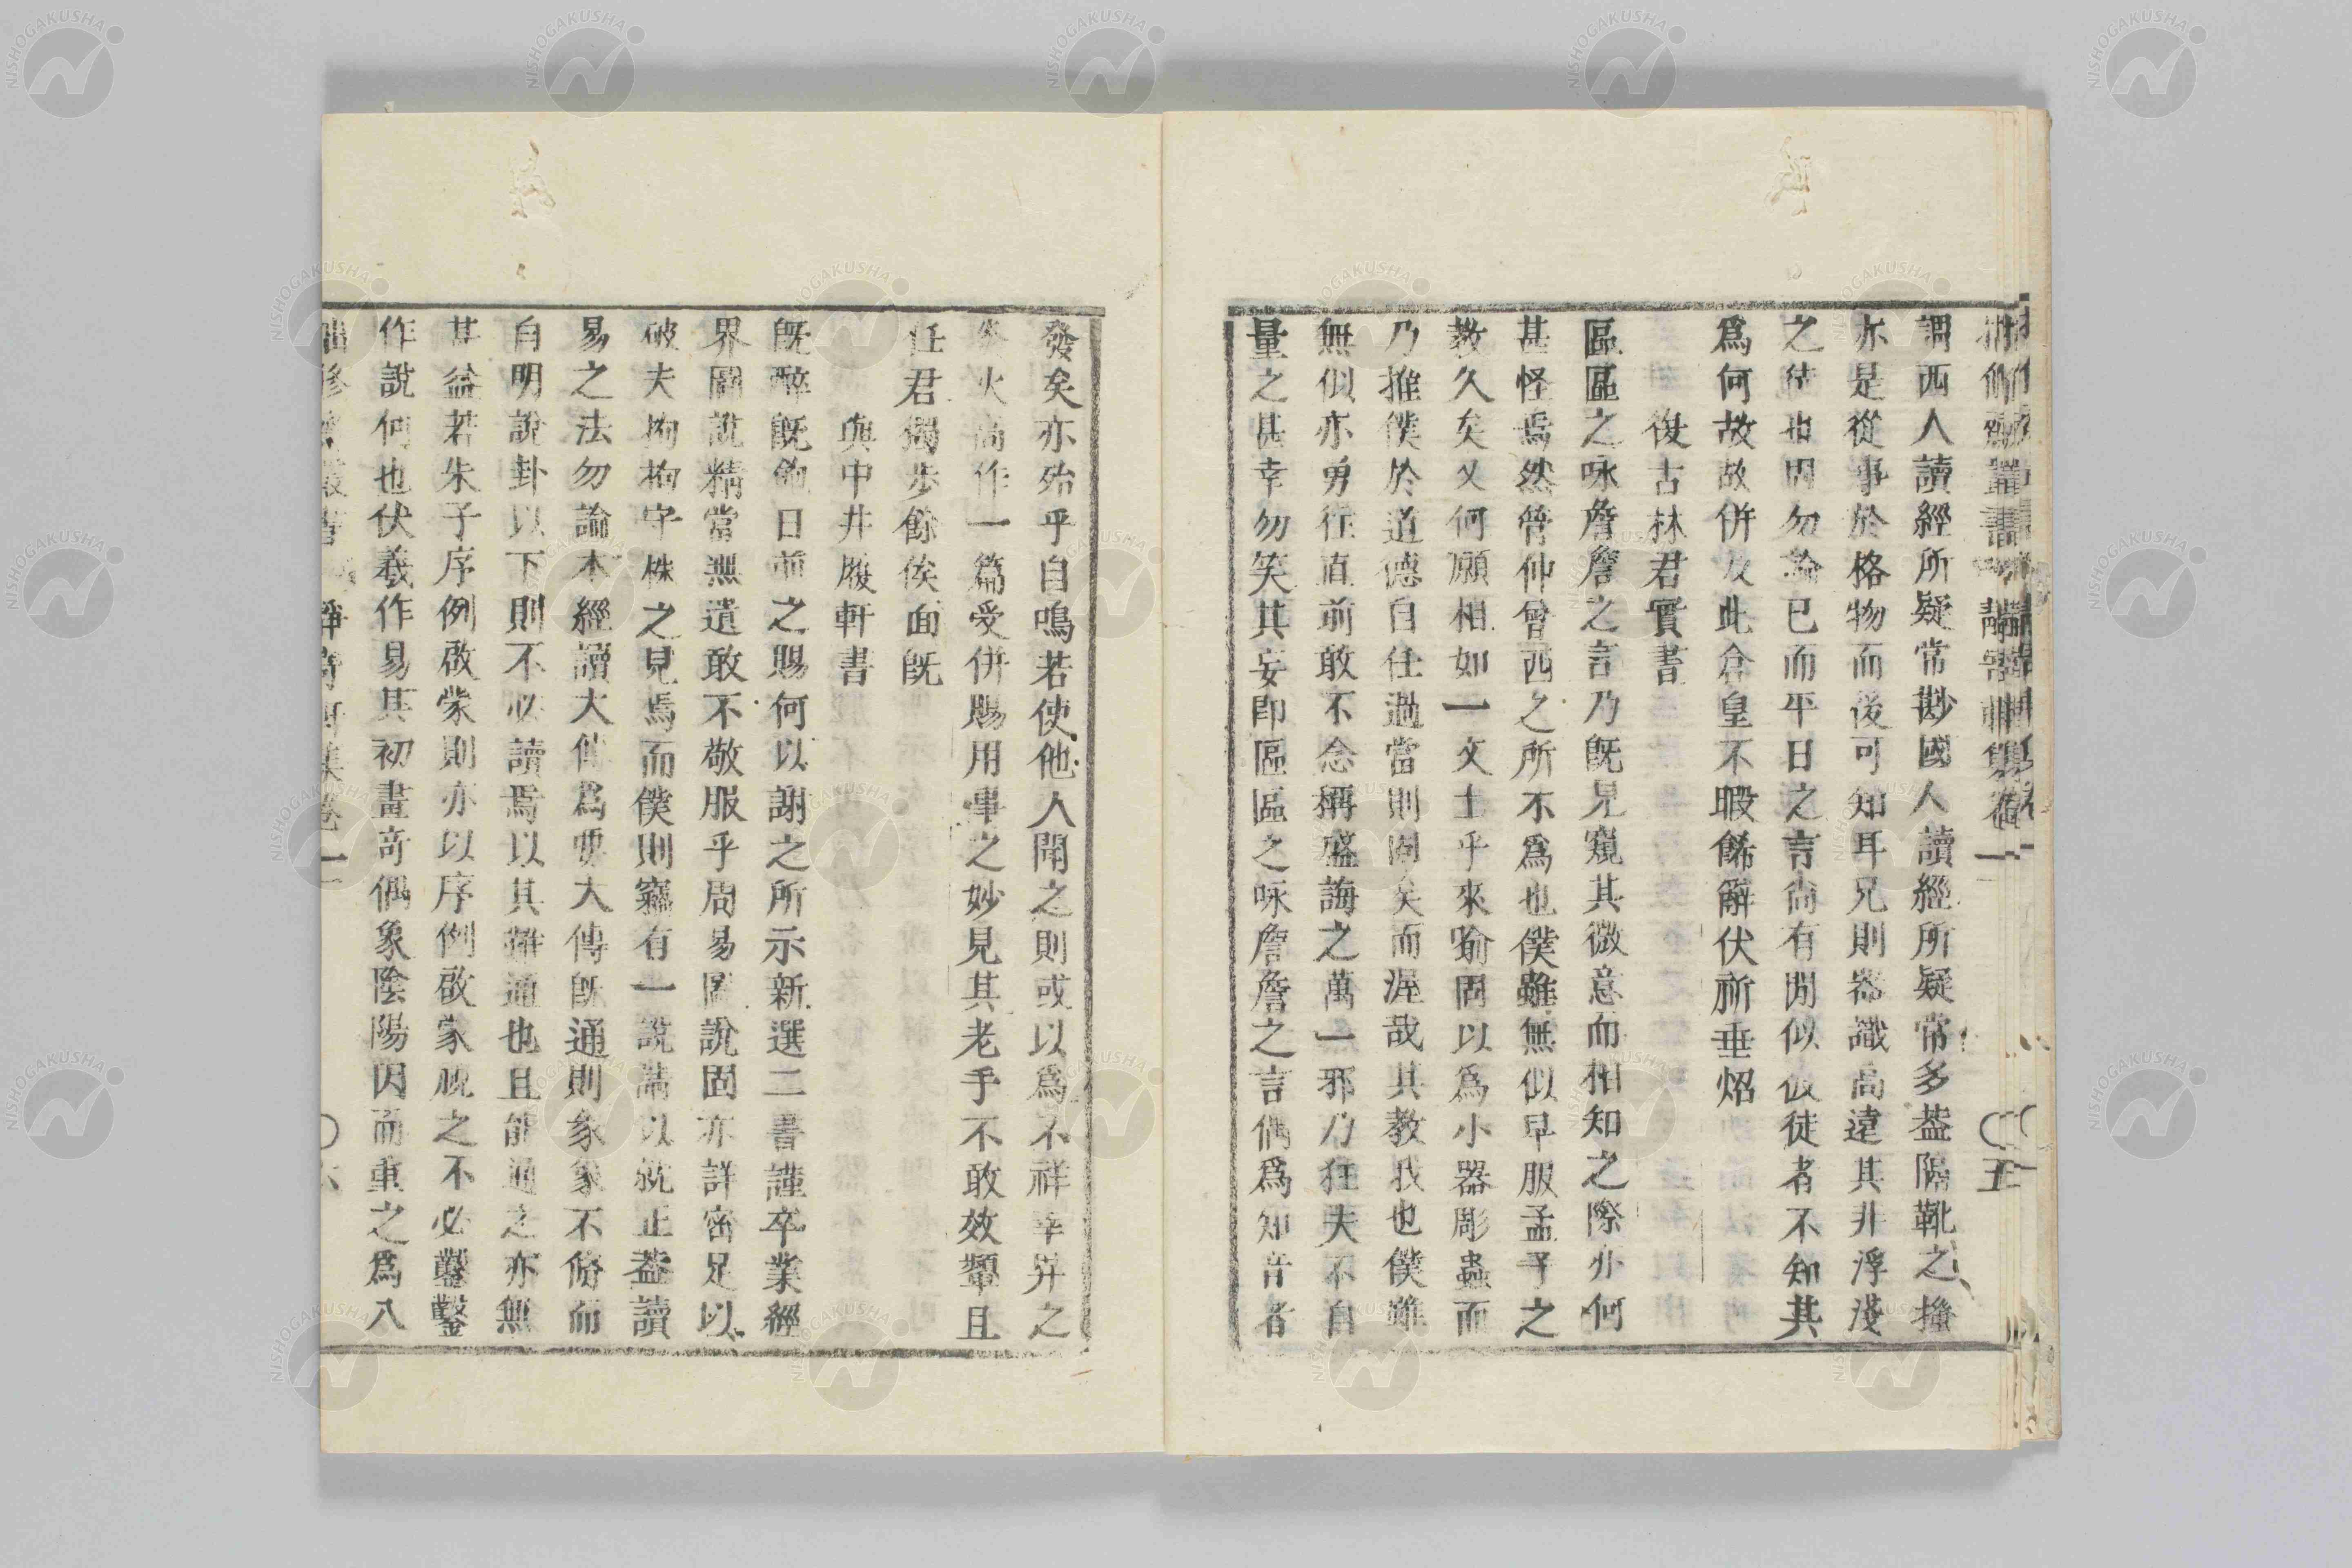 謂西人讀經所疑常尠國人讀經所疑常多葢隔靴之搔
亦是從事於格物而後可知耳兄則器識高遠其非浮淺
之徒也固勿論已而平日之言尙有閒似彼徒者不知其
爲何故故併及此倉皇不暇餙辭伏祈垂炤
復古林君實書
區區之咏詹詹之言乃旣見窺其微意而相知之際亦何
甚怪焉然管仲曾西之所不爲也僕雖無似早服孟子之
敎久矣又何願相如一文士乎來喻固以爲小器彫蟲而
乃推僕於道德自任過當則過矣而渥哉其教我也僕雖
無似亦勇往直前敢不念稱盛誨之萬一邪乃狂夫不自
量之甚幸勿笑其妄卽區區之咏詹詹之言偶爲知音者
發矣亦殆乎自鳴若使他人聞之則或以爲不祥幸幷之
火尚作一篇受併賜用筆之妙見其老手不敢效顰且
任君獨步餘俟面旣
與中井履軒書
旣醉旣飽日前之賜何以謝之所示新選二書謹卒業經
界圖說精當無遺敢不敬服乎周易圖說固亦詳密足以
破夫拘拘守株之見焉而僕則竊有一說請以就正葢讀
易之法勿論本經讀大傳爲要大傳旣通則彖象不脩而
自明說卦以下則不必讀焉以其難通也且能通之亦無
其益若朱子序例啟蒙則亦以序例啟蒙視之不必鑿鑿
作說何也伏羲作易其初畫奇偶象陰陽閃而重之爲八